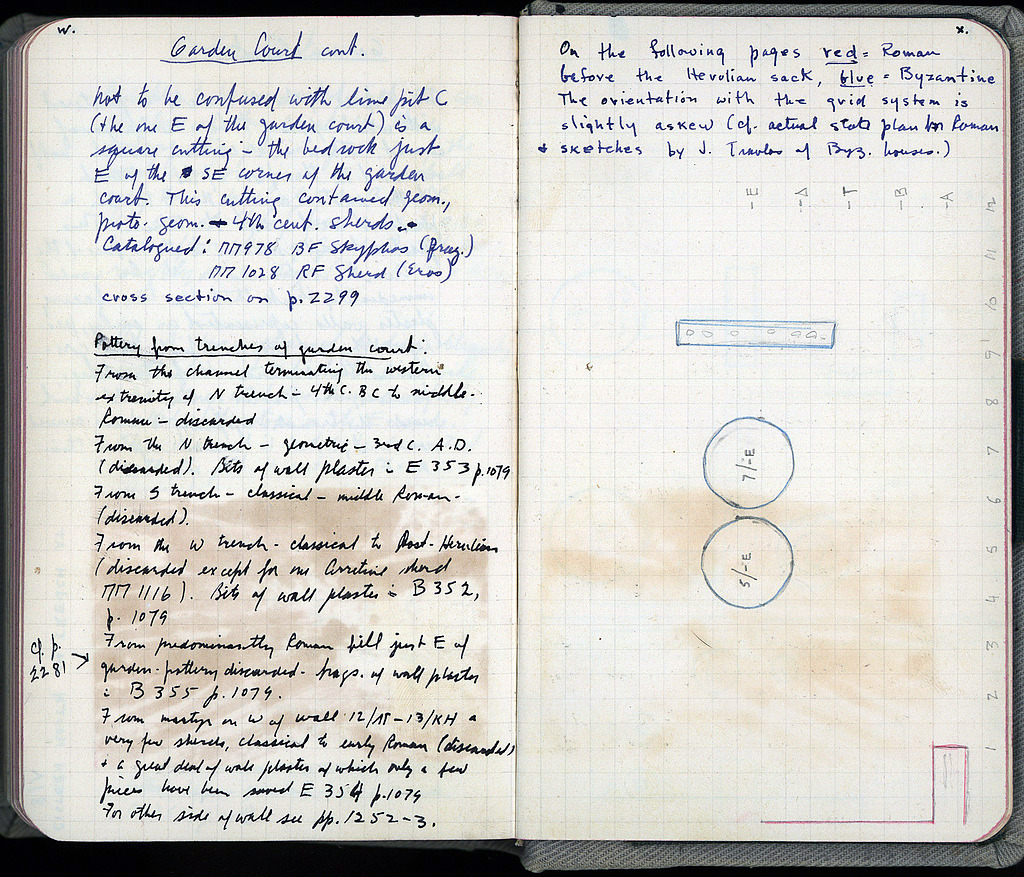 w.
Garden Court cont.
not to be confused with lime pit C
(the one E of the garden court) is a
square cutting – the bedrock just
E of the SE corner of the garden
court. This cutting contained geom.,
proto-geom. – 4th cent. sherds.
Catalogued: ΠΠ978 BF Skyphos (frag.)
ΠΠ1028 RF Sherd (Eros)
cross section on p. 2299
Pottery from trenches of garden court:
From the channel terminating the western
extremity of N trench – 4th C. BC to middle-
Roman – discarded
From the N trench – geometric – 3rd C. A.D.
(discarded). Bits of wall plaster = E 353 p.1079
From S trench – classical – middle Roman –
(discarded).
From the W trench – classical to Post-Herulian
(discarded except for one Arretine sherd
ΠΠ1116). Bits of wall plaster = B 352,
p. 1079
cf. p.
2281
From predominantly Roman fill just E of
garden – pottery discarded – frags. of wall plaster
= B 355 p. 1079.
From martyr on W of wall 12/ – 13/ a
very few sherds, classical to early Roman (discarded)
+ a great deal of wall plaster of which only a few
pieces have been saved E 354 p.1079
For other side of wall see pp. 1252–3.
x.
On the following pages red = Roman
before the Herulian sack, blue = Byzantine
The orientation with the grid system is
slightly askew (cf. actual state plan for Roman
+ sketches by J. Travlos of Byz. houses.)
-E
-Δ
-Γ
-B
-A
12
11
10
9
8
7
6
5
4
3
2
1
7/-E
5/-E